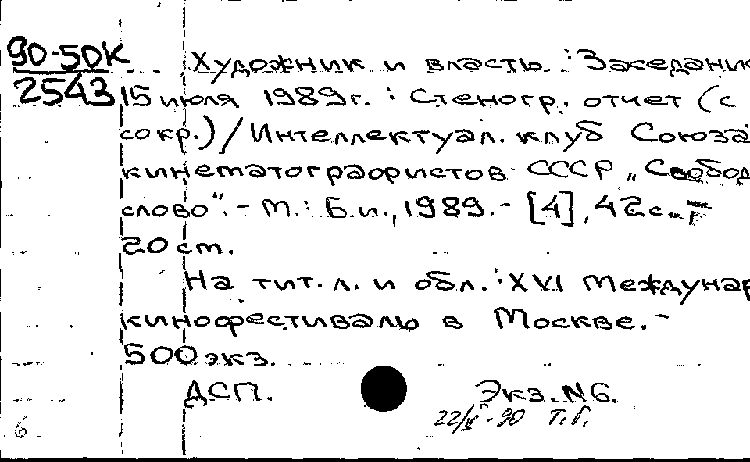 90-50К
2543
Художник и власть : Заседание
15 июля 1989г. : Стеногр. отчет (с
сокр.) / Интеллектуал. клуб Союза
кинематографистов СССР „Свобод
слово". - М. : Б.и., 1989. - [4], 42 с.
20 см.
На тит. л. и обл. : XVI Междунар
кинофестиваль в Москве. -
500 экз.
ДСП. Экз. N6.
22/V-90 Т.Г.
6